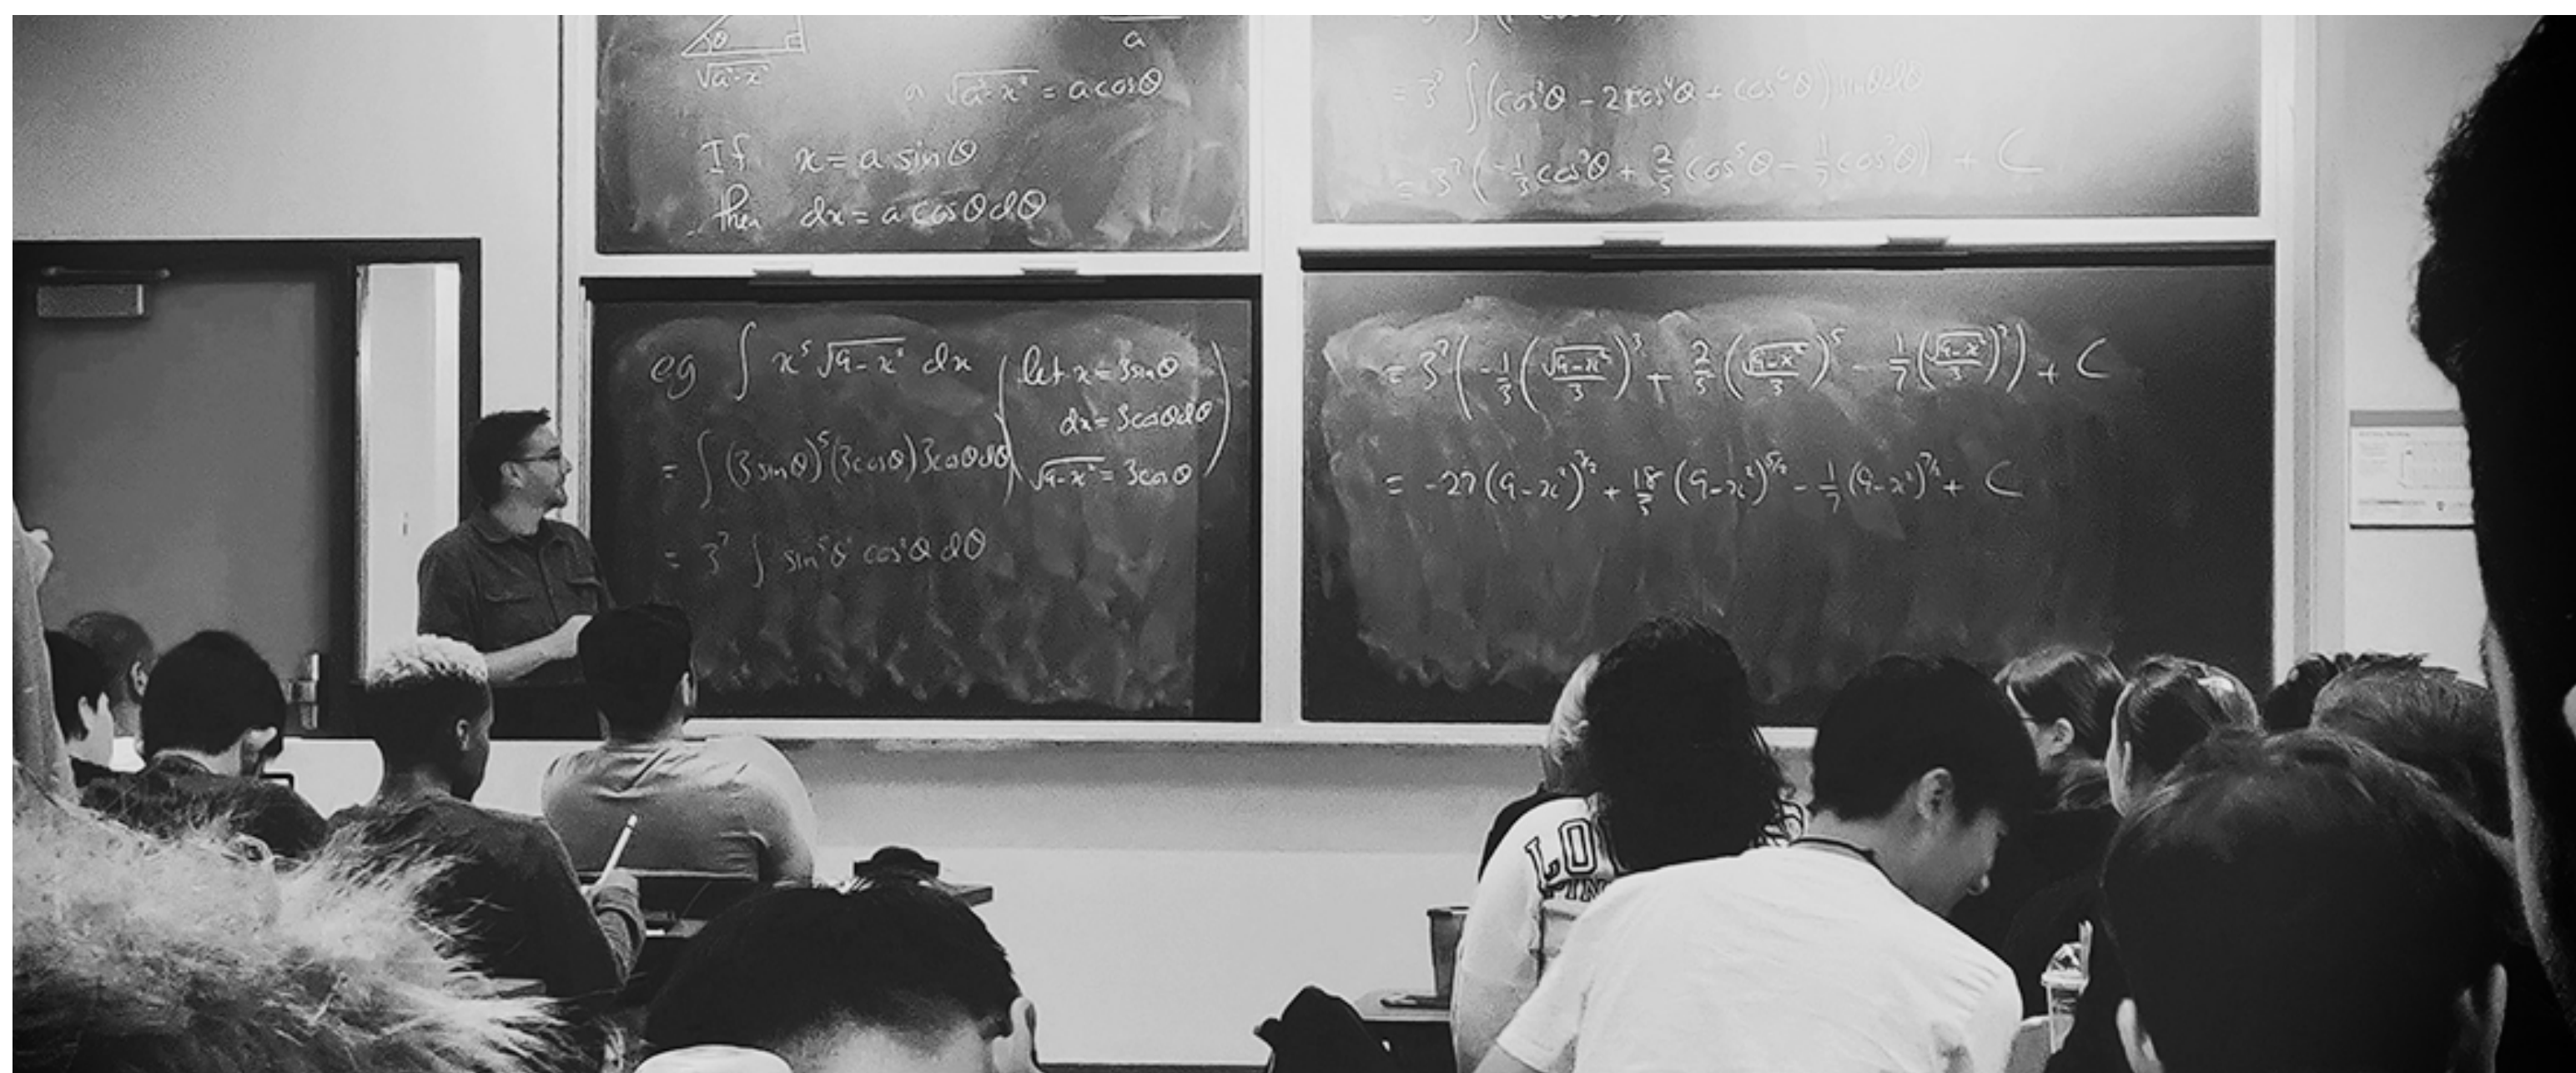 θ
√a²-x²
a
√a²-x² = a cosθ
If x = a sinθ
then dx = a cosθdθ
= 3⁷ ∫(cos²θ - 2cos⁴θ + cos⁶θ) sinθdθ
= 3⁷(-1/3 cos³θ + 2/5 cos⁵θ - 1/7 cos⁷θ) + C
eg ∫ x⁵ √9-x² dx (let x = 3sinθ
dx = 3cosθdθ
√9-x² = 3cosθ)
= ∫ (3sinθ)⁵(3cosθ)3cosθdθ
= 3⁷ ∫ sin⁵θ cos²θ dθ
= 3⁷(-1/3(√9-x²/3)³ + 2/5(√9-x²/3)⁵ - 1/7(√9-x²/3)⁷) + C
= -27(9-x²)^3/2 + 18/5(9-x²)^5/2 - 1/7(9-x²)^7/2 + C
LO
PIN